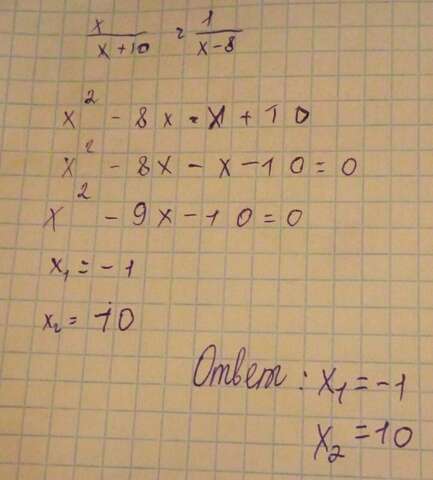 x/(x+10) = 1/(x-8)
x² - 8x = x + 10
x² - 8x - x - 10 = 0
x² - 9x - 10 = 0
x₁ = -1
x₂ = 10
Ответ: x₁ = -1
x₂ = 10